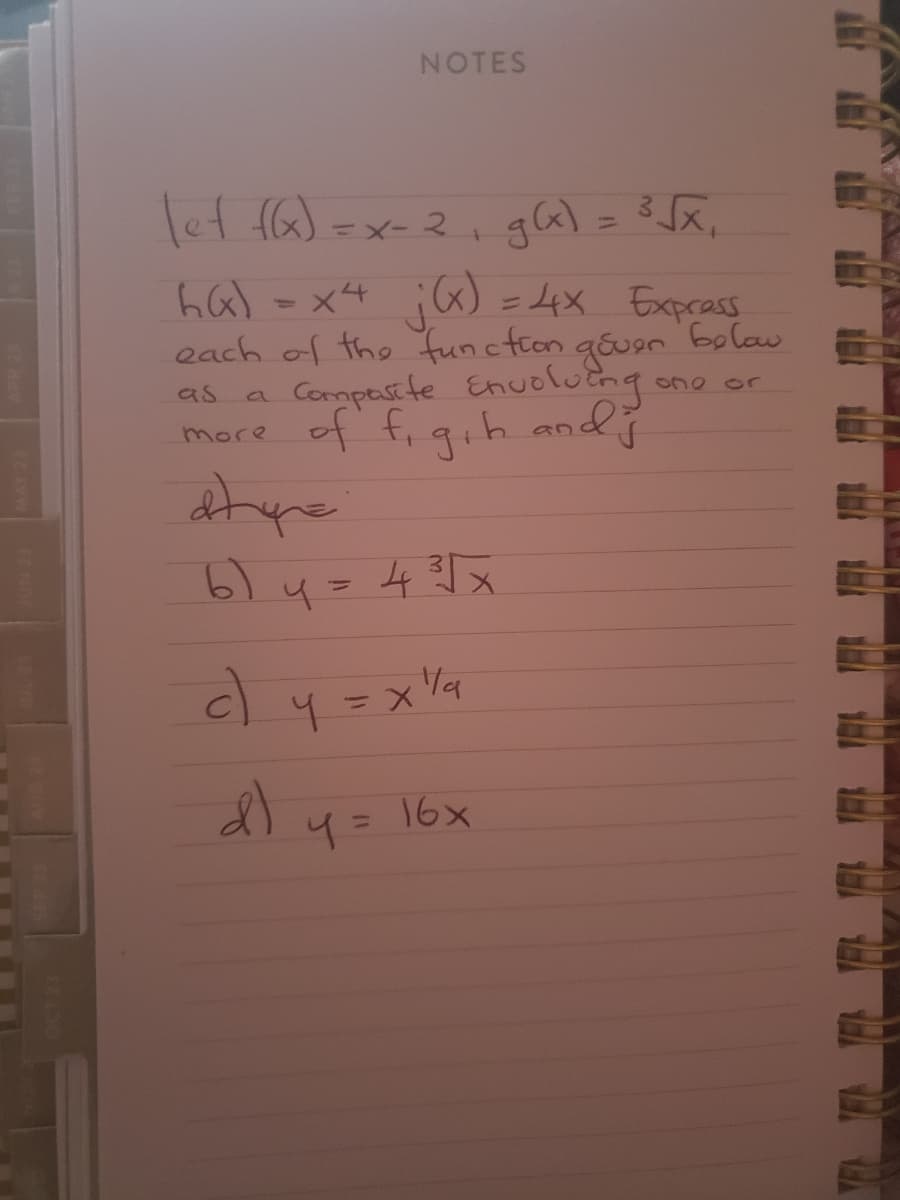 NOTES
let f(x) = x - 2, g(x) = ³√x,
h(x) = x4 j(x) = 4x Express
each of the function given below
as a Composite Envolving one or
more of f, g, h and j
b) y = 4 ³√x
c) y = x^1/9
d) y = 16x